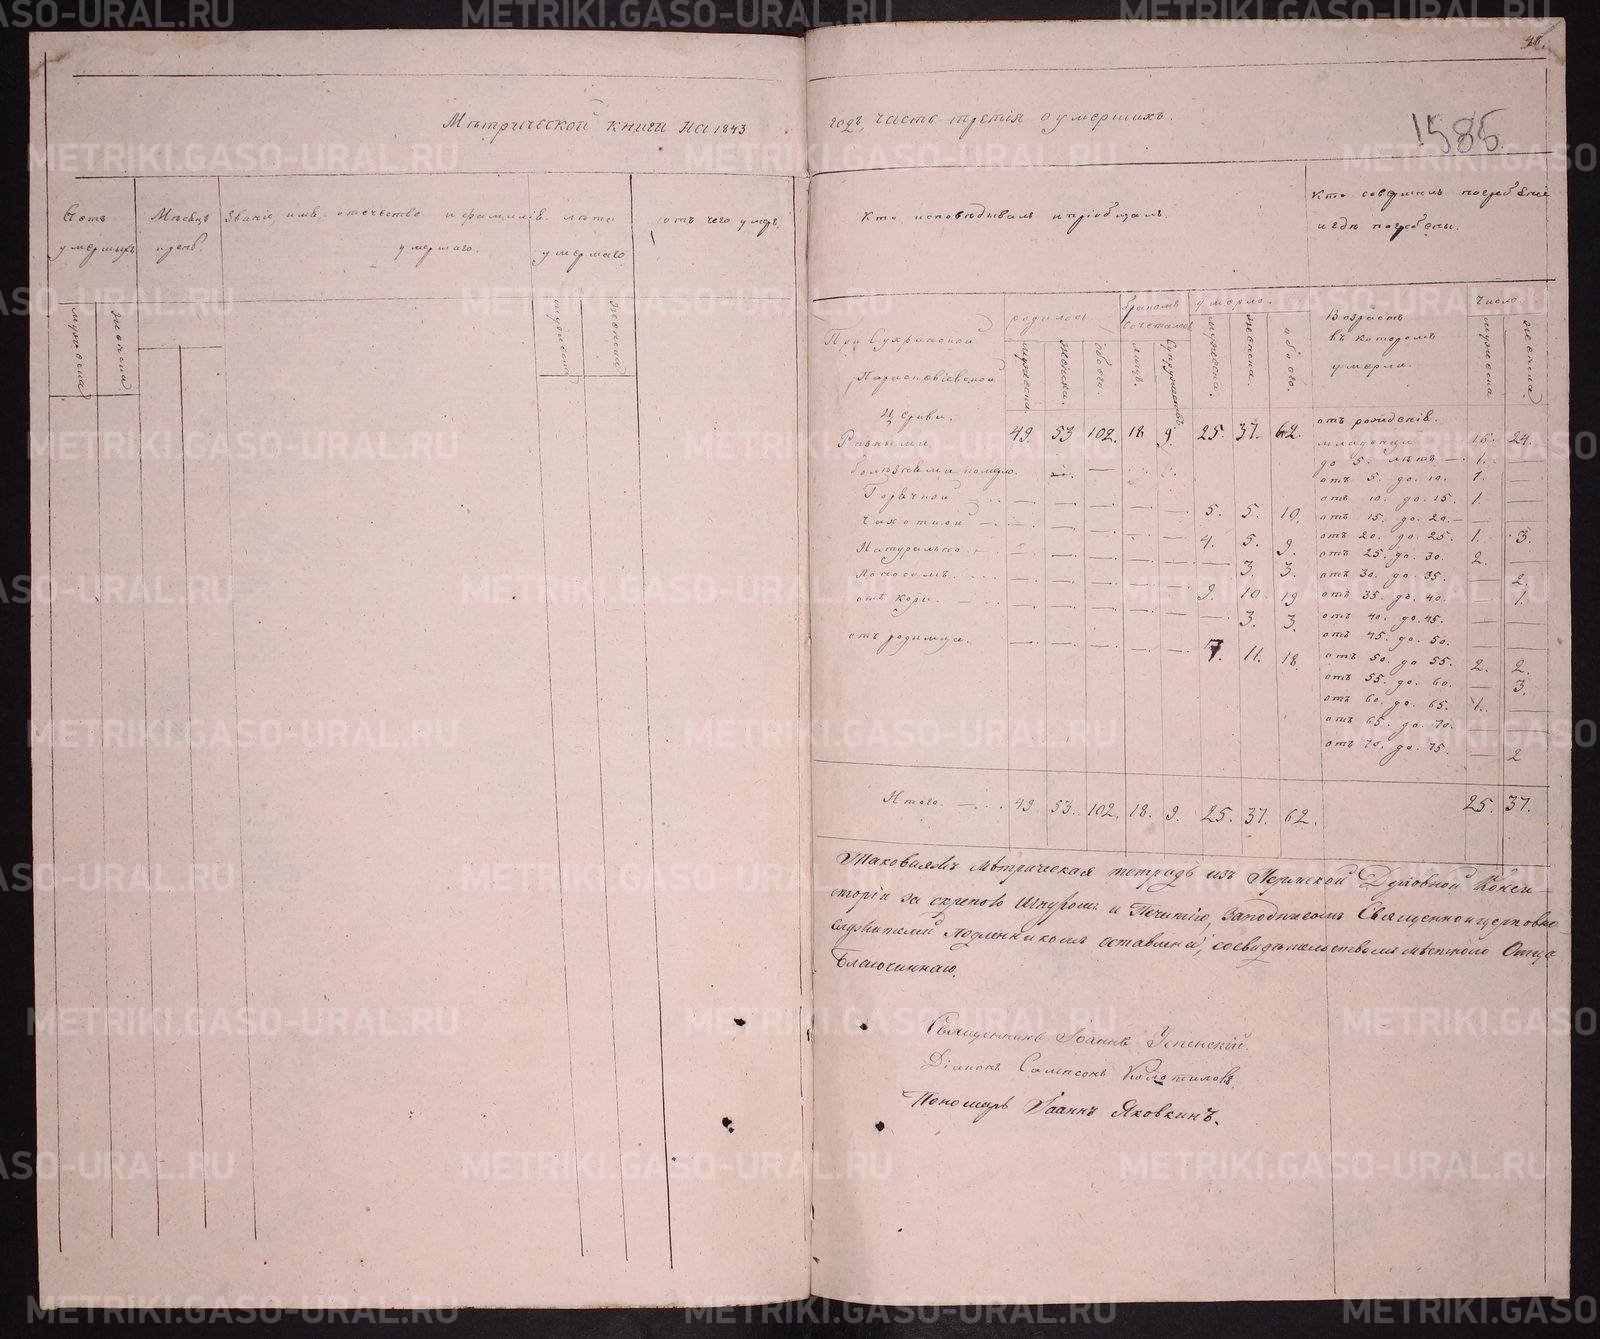 48.
1585.
Метрической книги на 1843
годъ, часть третія о умершихъ.
Счетъ умершыхъ
Мѣсецъ и день.
Званіе, имѣ, отечество и фамилія умершаго.
лѣта умершаго
отъ чего умеръ.
мужеска
женска
мужеска
женска
Кто исповѣдывалъ и пріобщалъ.
Кто совершилъ погребѣніе
и гдѣ погребены.
При Сухринской
Параскевіевской
Церкви.
родилось
мужеска.
женска.
обоего.
Бракомъ сочеталось
лицъ.
супружествъ
умерло.
мужеска.
женска.
обоего.
Возрастъ
въ которомъ
умерли.
Число.
мужеска
женска
49. 53 102. 18 9. 25. 37. 62.
Разными
болѣзнѣми померло.
Горѣчкой — — — — — 5. 5. 10.
Чахоткой — — — — — 4. 5. 9.
Натурально — — — — — — 3. 3.
Поносомъ — — — — — 9. 10. 19
отъ кори. — — — — — — 3. 3.
отъ родимца. — — — — — 7. 11. 18.
отъ рожденія.
младенца 16. 24.
до 5. лѣтъ — 1. —
отъ 5. до 10. 1. —
отъ 10. до 15. 1. —
отъ 15. до 20. — —
отъ 20. до 25. 1. 3.
отъ 25. до 30. 2. —
отъ 30. до 35. — 2.
отъ 35. до 40. — 1.
отъ 40. до 45. — —
отъ 45. до 50. — —
отъ 50. до 55. 2. 2.
отъ 55. до 60. — 3.
отъ 60. до 65. 1. —
отъ 65. до 70.
отъ 70. до 75. — 2
Итого. — 49 53. 102. 18. 9. 25. 37. 62. 25. 37.
метрическая тетрадь изъ Пермской Духовной Конси
сторіи за скрепою Шнуромъ и Печатію, Священноцерковно
служителей оставлена, мѣстного Отца
Благочиннаго.
Священникъ Іоаннъ Успенскій.
Діаконъ Сампсонъ Колотиловъ.
Пономарь Іоаннъ Яковкинъ.
METRIKI.GASO-URAL.RU